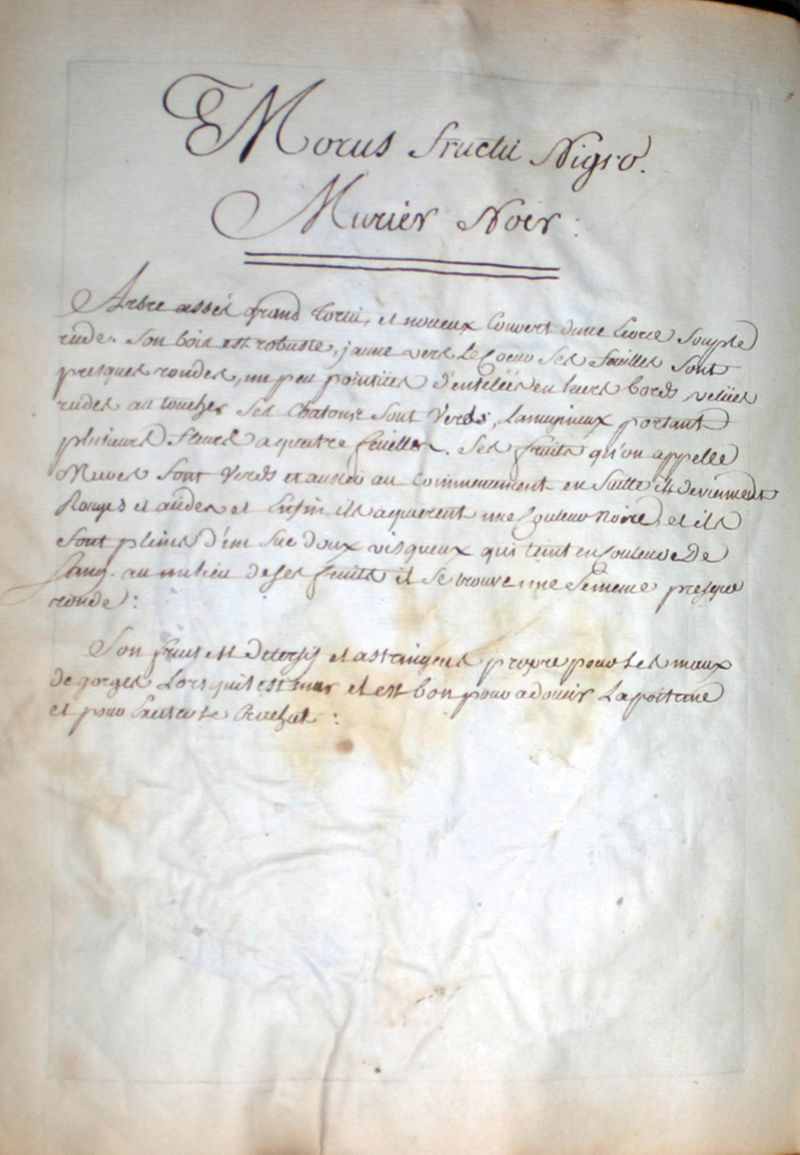 Morus fructu Nigro.
Murier Noir :
Arbre assés grand tortu, et noueux couvert dune Ecorce Souple
rude. Son bois est robuste, jaune vers Le Coeur Ses feuilles Sont
presques rondes, un peu pointües d'entelées en leurs bords, velües
rudes au toucher Ses Chatons Sont Verds, Lanugineux portant
plusieurs fleurs a quatre feuilles. Ses fruits qu'on appelle
Meures Sont Verds et au commencement en Suitte ils deviennent
Rouges et acides et Enfin ils aquierent une Couleur Noire, et ils
Sont pleins d'un Suc doux visqueux qui teint en Couleur De
Sang. au milieu de Ses fruits il se trouve une Semence presque
ronde :
Son fruit est Detersif et astringent propre pour Les maux
de gorges Lors quil est mur et est bon pour adoucir La poitrine
et pour Exciter Le Crachat :